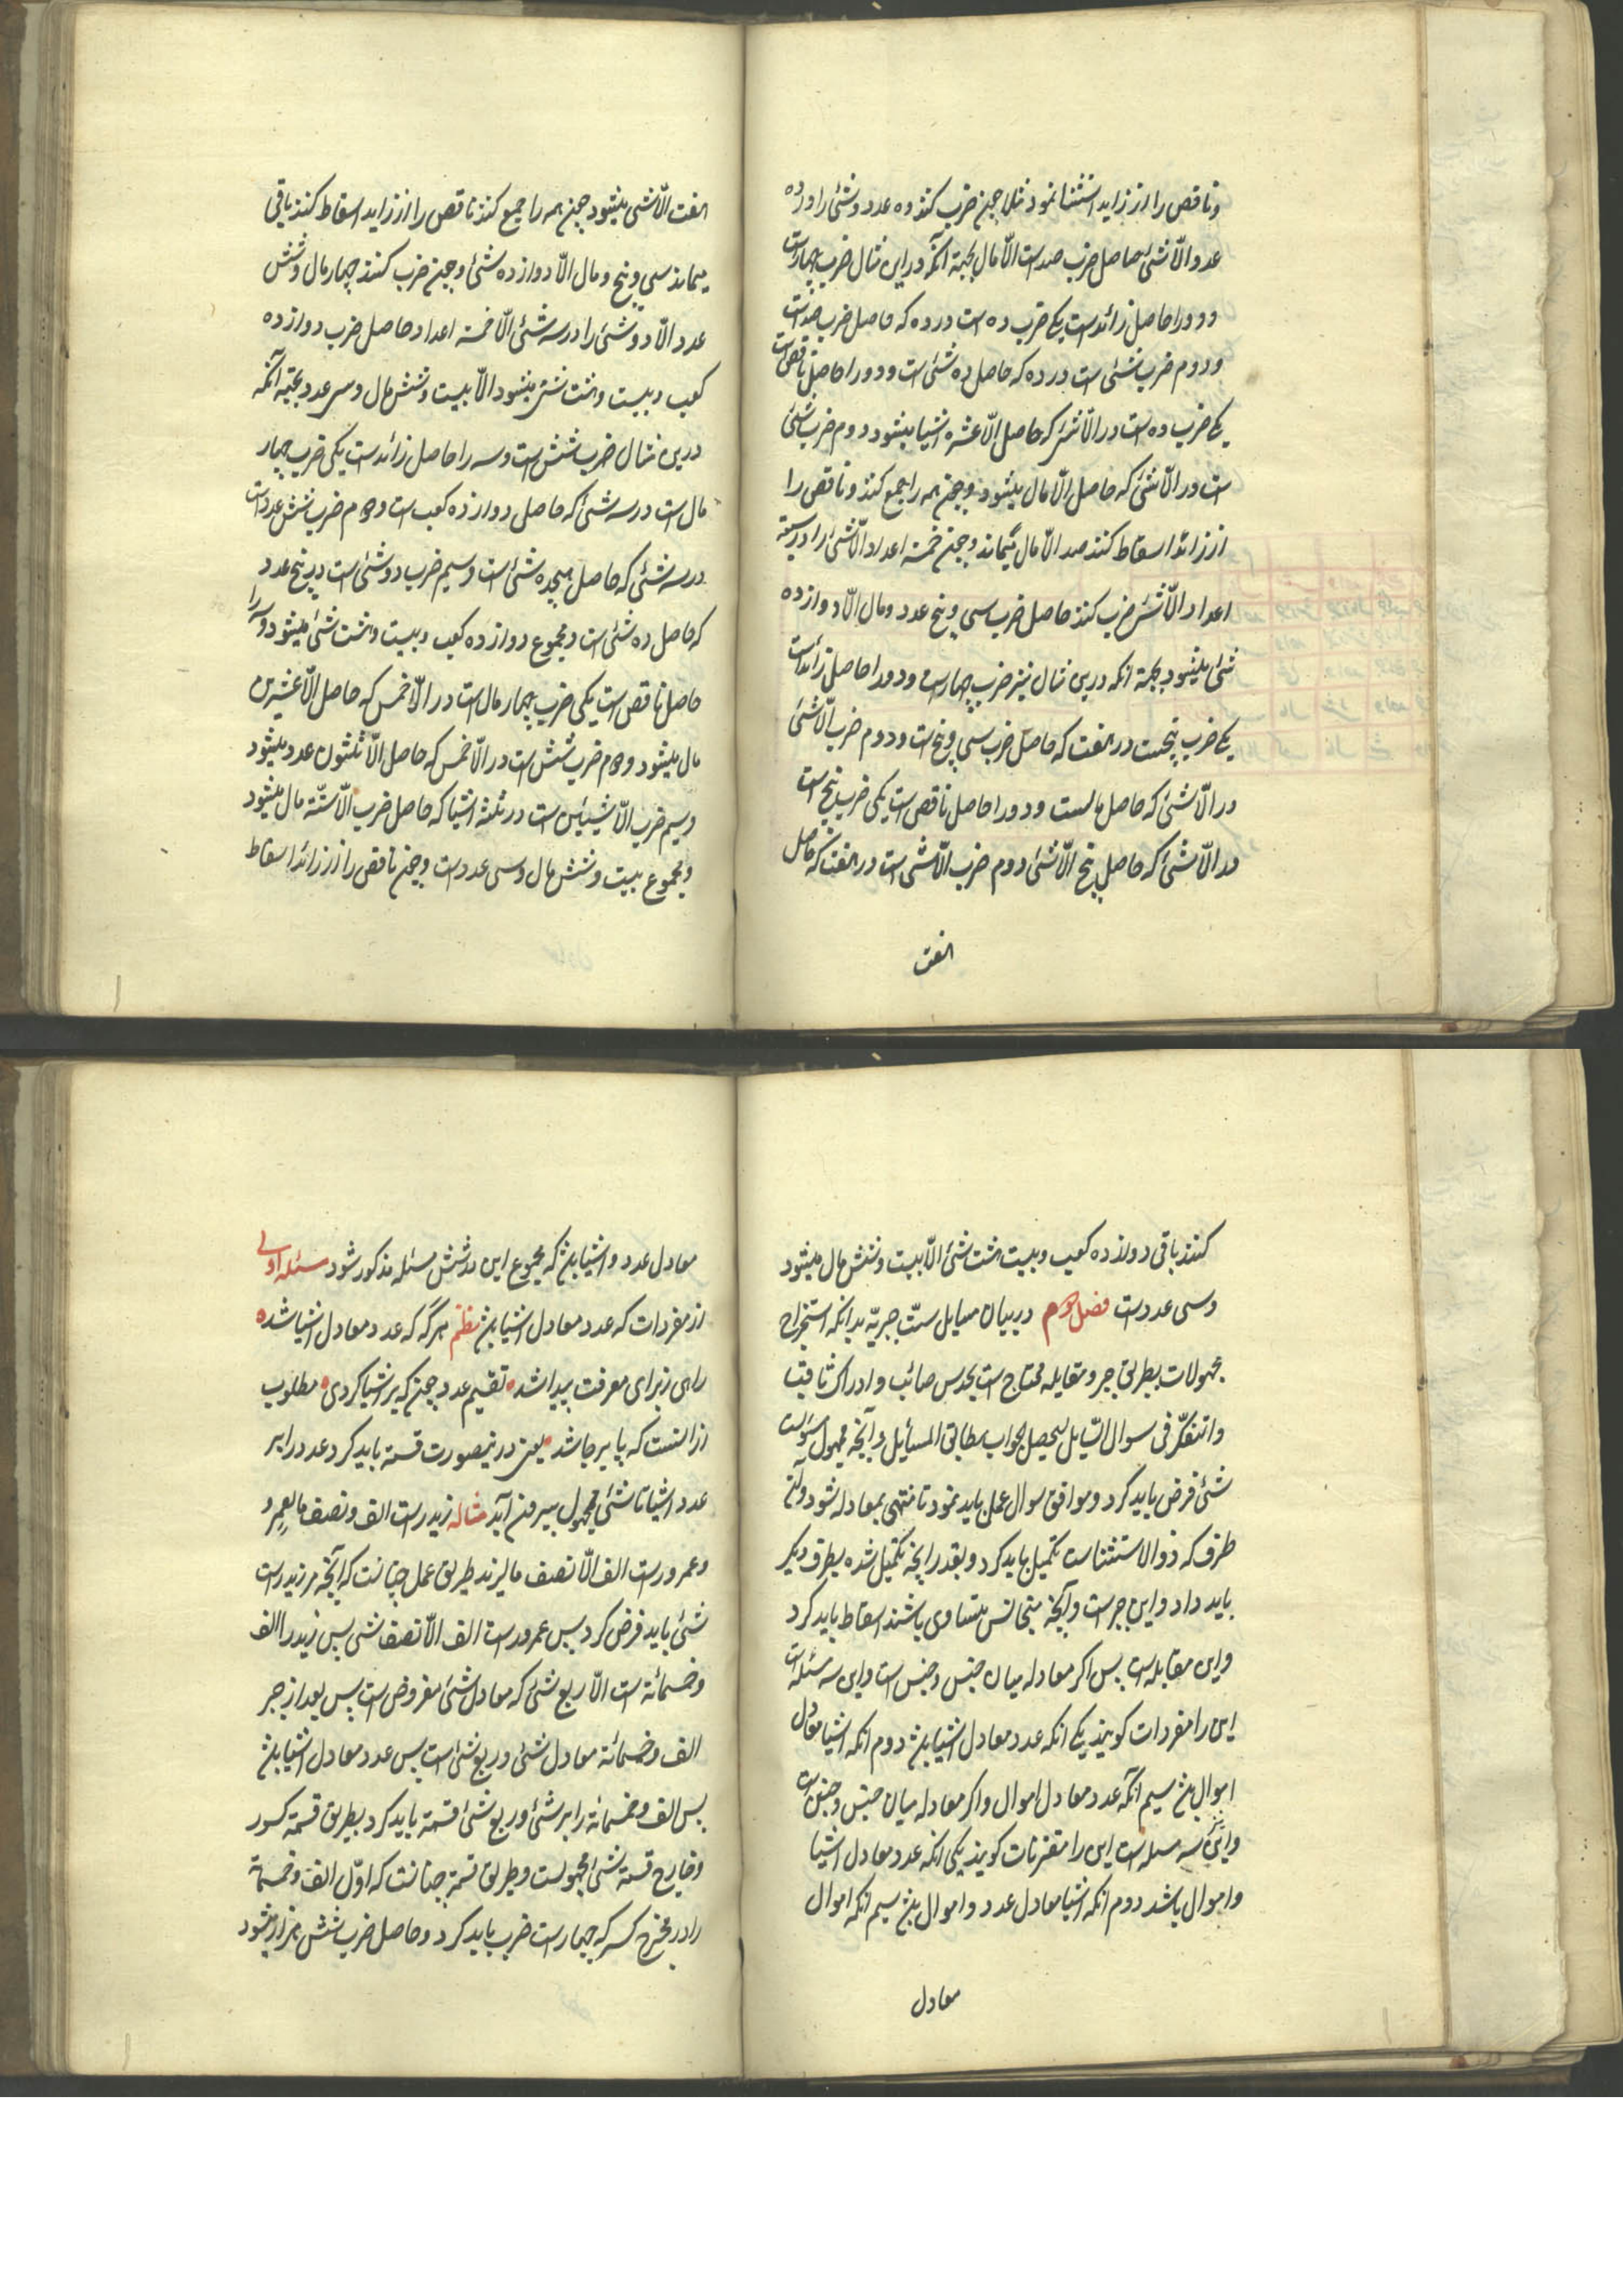 و ناقص را از زاید استثنا نمود مثلا چون ضرب کنند ده عدد و شئ را در ده
عدد الّا شئ حاصل ضرب صد است الّا مال بجهة آنکه در این مثال ضرب چهارست
و دو را حاصل زائدست یکی ضرب ده است در ده که حاصل ضرب صدست
و دوم ضرب شئ است در ده که حاصل ده شئ است و دو را حاصل ناقص است
یکی ضرب ده است در الّا شئ که حاصل الّا عشره اشیا میشود دوم ضرب شئ
است در الّا شئ که حاصل الّا مال میشود و چون همه را جمع کنند و ناقص را
از زائد اسقاط کنند صد الّا مال میماند و چون خمسة اعداد الّا شئ را در سبعة
اعداد الّا شئ ضرب کنند حاصل ضرب سی و پنج عدد و مال الّا دوازده
شئ میشود بجهة آنکه درین مثال نیز ضرب چهارست و دو را حاصل زائد است
یکی ضرب پنجست در هفت که حاصل ضرب سی و پنج است و دوم ضرب الّا شئ
در الّا شئ که حاصل مالست و دو را حاصل ناقص است یکی ضرب پنج است
در الّا شئ که حاصل پنج الّا شئ دوم ضرب الّا شئ است در هفت که حاصل
هفت
هفت الّا شئ میشود چون همه را جمع کنند ناقص را از زاید اسقاط کنند باقی
میماند سی و پنج و مال الّا دوازده شئ و چون ضرب کنند چهار مال و شش
عدد الّا دو شئ را در سه شئ الّا خمسه اعداد حاصل ضرب دوازده
کعب و بیست و هشت شئ میشود الّا بیست و شش مال و سی عدد بجهة آنکه
درین مثال ضرب شش است و سه را حاصل زائدست یکی ضرب چهار
مال است در سه شئ که حاصل دوازده کعب است و دوم ضرب شش عدد است
در سه شئ که حاصل هیجده شئ است و سیم ضرب دو شئ است در پنج عدد
که حاصل ده شئ است و مجموع دوازده کعب و بیست و هشت شئ میشود و سه را
حاصل ناقص است یکی ضرب چهار مال است در الّا خمس که حاصل الّا عشرین
مال میشود و دوم ضرب شش است در الّا خمس که حاصل الّا ثلثون عدد میشود
و سیم ضرب الّا شیئین است در ثلثة اشیا که حاصل ضرب الّا ستّة مال میشود
و مجموع بیست و شش مال و سی عددست و چون ناقص را از زائد اسقاط
کنند باقی دوازده کعب و بیست هشت شئ الّا بیست و شش مال میشود
و سی عددست فصل دوم در بیان مسایل ستّ جبریّه بدانکه استخراج
مجهولات بطریق جبر و مقابله محتاج است بحدس صائب و ادراک ثاقب
و التفکّر فی سوال السّایل لیحصل الجواب مطابق المسایل و آنچه مجهول سؤالست
شئ فرض باید کرد و موافق سوال عمل باید نمود تا منتهی بمعادله شود و آن
طرف که ذو الاستثناست تکمیل باید کرد و بقدر آنچه تکمیل شده بطرف دیگر
باید داد و این جبرست و آنچه متجانس متساوی باشند اسقاط باید کرد
و این مقابله است پس اگر معادله میان جنس و جنس است و این سه مسئله است
این را مفردات گویند یکی آنکه عدد معادل اشیا باشد دوم آنکه اشیا معادل
اموال باشد سیم آنکه عدد معادل اموال و اگر معادله میان جنس و جنسین است
و این سه مسله است این را مقترنات گویند یکی آنکه عدد معادل اشیا
و اموال باشد دوم آنکه اشیا معادل عدد و اموال باشد سیم آنکه اموال
معادل
معادل عدد و اشیا باشد که مجموع این شش مسئله مذکور شود مسئله اولی
از مفردات که عدد معادل اشیا باشد نظم هرگه که عدد معادل اشیا شده
راهی ز برای معرفت پیدا شد تقسیم عدد چون که بر اشیا کردی مطلوب
از انست که پابرجا شد یعنی درینصورت قسمة باید کرد عدد را بر
عدد اشیا تا شئ مجهول بیرون آید مثاله زید راست الف و نصف ما لعمرو
و عمرو راست الف الّا نصف ما لزید طریق عمل چنانست که آنچه مر زید راست
شئ باید فرض کرد پس عمرو راست الف الّا نصف شئ پس زید را الف
و خمسمائة است الّا ربع شئ که معادل شئ مفروض است پس بعد از جبر
الف و خمسمائة معادل شئ و ربع شئ است پس عدد معادل اشیا باشد
پس الف و خمسمائة را بر شئ و ربع شئ قسمة باید کرد بطریق قسمة کسور
و خارج قسمة شئ مجهولست و طریق قسمة چنانست که اوّل الف و خمسمائة
را در مخرج کسر که چهارست ضرب باید کرد و حاصل ضرب شش هزار میشود